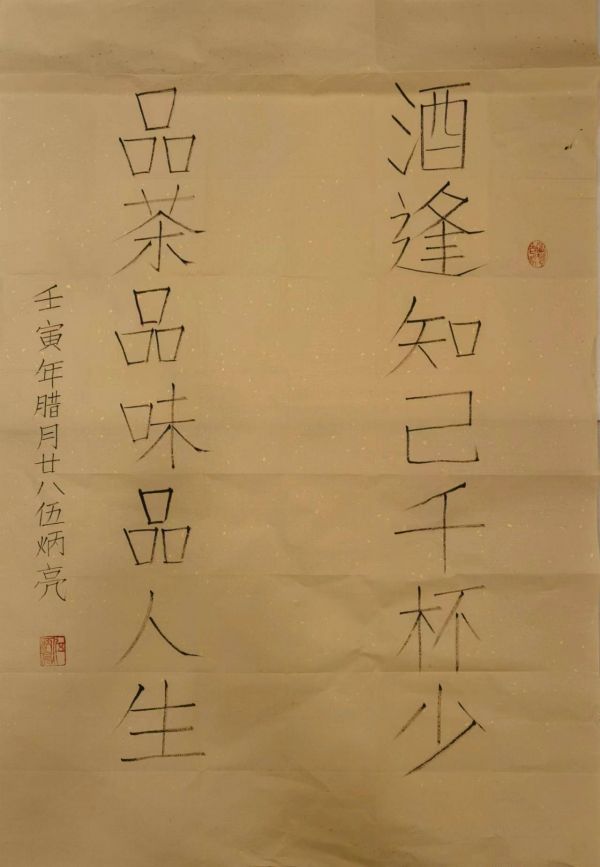 酒逢知己千杯少
品茶品味品人生
壬寅年腊月廿八伍炳亮